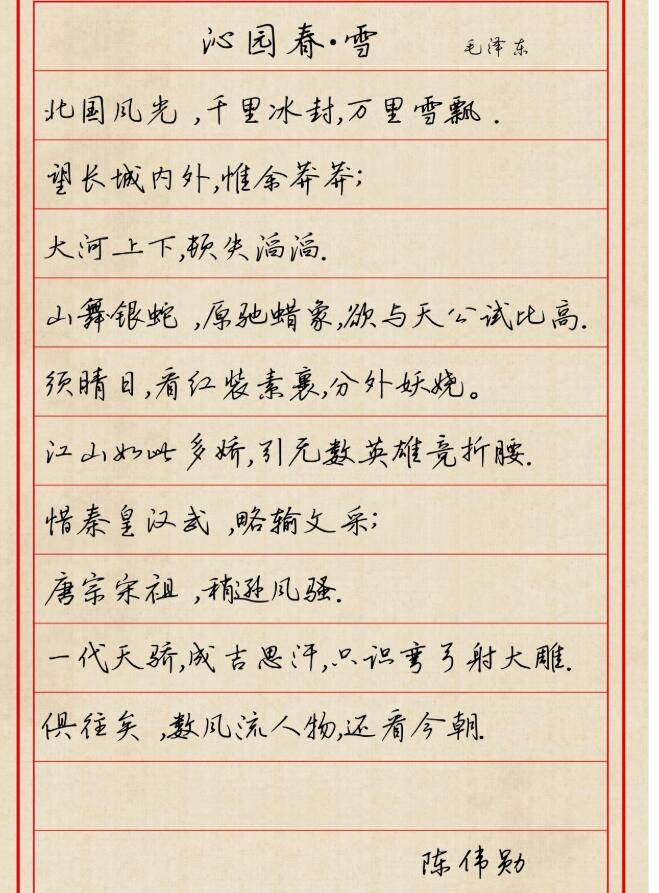 沁园春·雪 毛泽东
北国风光,千里冰封,万里雪飘.
望长城内外,惟余莽莽;
大河上下,顿失滔滔.
山舞银蛇,原驰蜡象,欲与天公试比高.
须晴日,看红装素裹,分外妖娆。
江山如此多娇,引无数英雄竞折腰.
惜秦皇汉武,略输文采;
唐宗宋祖,稍逊风骚.
一代天骄,成吉思汗,只识弯弓射大雕.
俱往矣,数风流人物,还看今朝.
陈伟勋